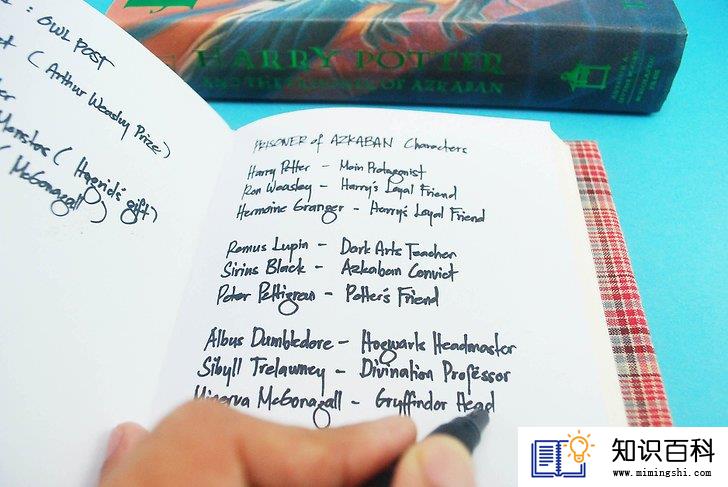 HARRY POTTER
AND THE PRISONER OF AZKABAN
: OWL POST
(Arthur Weasley Prize)
Monstos ( Hagrid's gift)
( McGonagall )
PRISONER of AZKABAN Characters
Harry Potter - Main Protagonist
Ron Weasley - Harry's Loyal Friend
Hermoine Granger - Harry's Loyal Friend
Remus Lupin - Dark Arts Teacher
Sirius Black - Azkaban Convict
Peter Pettigrew - Potter's Friend
Albus Dumbledore - Hogwarts Headmaster
Sibyll Trelawney - Divination Professor
Minerva McGonagall - Gryffindor Head
知识百科
www.mimingshi.com